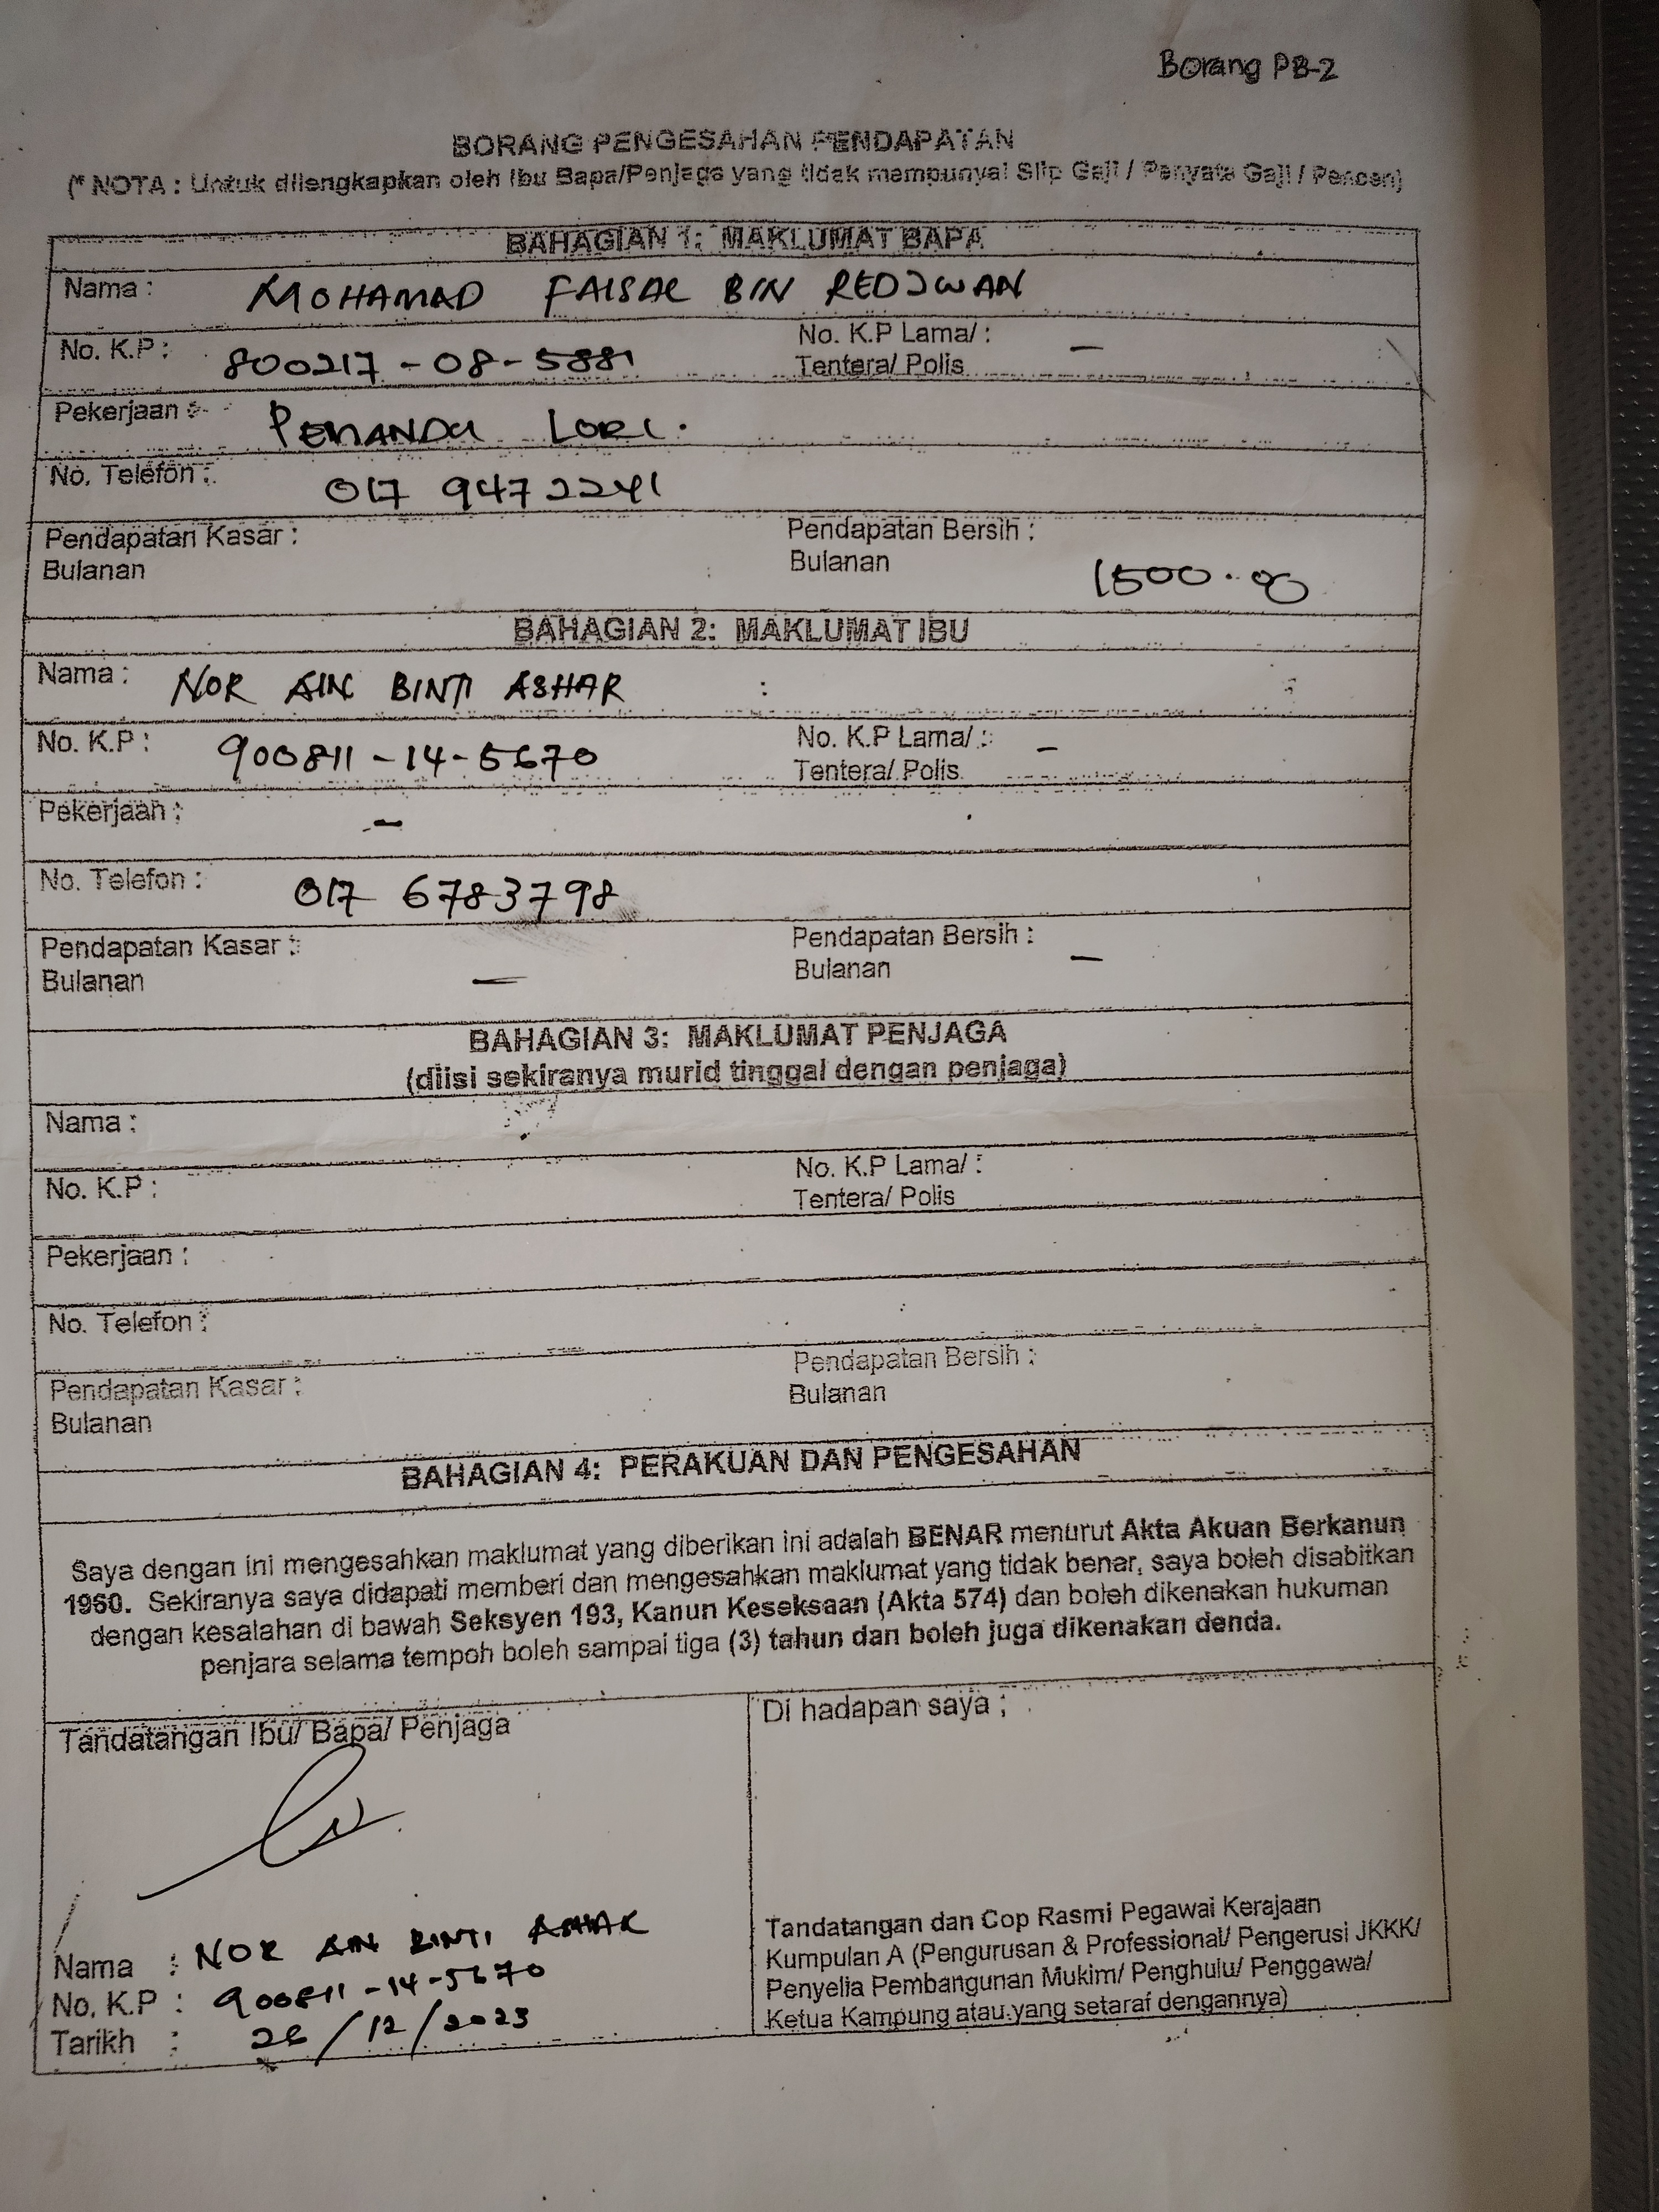 Borang PB-2
BORANG PENGESAHAN PENDAPATAN
(* NOTA : Untuk dilengkapkan oleh Ibu Bapa/Penjaga yang tidak mempunyai Slip Gaji / Penyata Gaji / Pencen)
BAHAGIAN 1: MAKLUMAT BAPA
Nama : MOHAMAD FAISAL BIN REDZWAN
No. K.P : 800217-08-5881 No. K.P Lama/ : -
Tentera/ Polis
Pekerjaan : PEMANDU LORI.
No. Telefon : 017 9472241
Pendapatan Kasar : Pendapatan Bersih :
Bulanan Bulanan 1500.00
BAHAGIAN 2: MAKLUMAT IBU
Nama : NOR AIN BINTI ASHAR
No. K.P : 900811-14-5670 No. K.P Lama/ : -
Tentera/ Polis
Pekerjaan : -
No. Telefon : 017 6783798
Pendapatan Kasar : Pendapatan Bersih :
Bulanan - Bulanan -
BAHAGIAN 3: MAKLUMAT PENJAGA
(diisi sekiranya murid tinggal dengan penjaga)
Nama :
No. K.P : No. K.P Lama/ :
Tentera/ Polis
Pekerjaan :
No. Telefon :
Pendapatan Kasar : Pendapatan Bersih :
Bulanan Bulanan
BAHAGIAN 4: PERAKUAN DAN PENGESAHAN
Saya dengan ini mengesahkan maklumat yang diberikan ini adalah BENAR menurut Akta Akuan Berkanun
1960. Sekiranya saya didapati memberi dan mengesahkan maklumat yang tidak benar, saya boleh disabitkan
dengan kesalahan di bawah Seksyen 193, Kanun Keseksaan (Akta 574) dan boleh dikenakan hukuman
penjara selama tempoh boleh sampai tiga (3) tahun dan boleh juga dikenakan denda.
Tandatangan Ibu/ Bapa/ Penjaga
Nama : NOR AIN BINTI ASHAR
No. K.P : 900811-14-5670
Tarikh : 26/12/2023
Di hadapan saya ;
Tandatangan dan Cop Rasmi Pegawai Kerajaan
Kumpulan A (Pengurusan & Professional/ Pengerusi JKKK/
Penyelia Pembangunan Mukim/ Penghulu/ Penggawa/
Ketua Kampung atau yang setaraf dengannya)